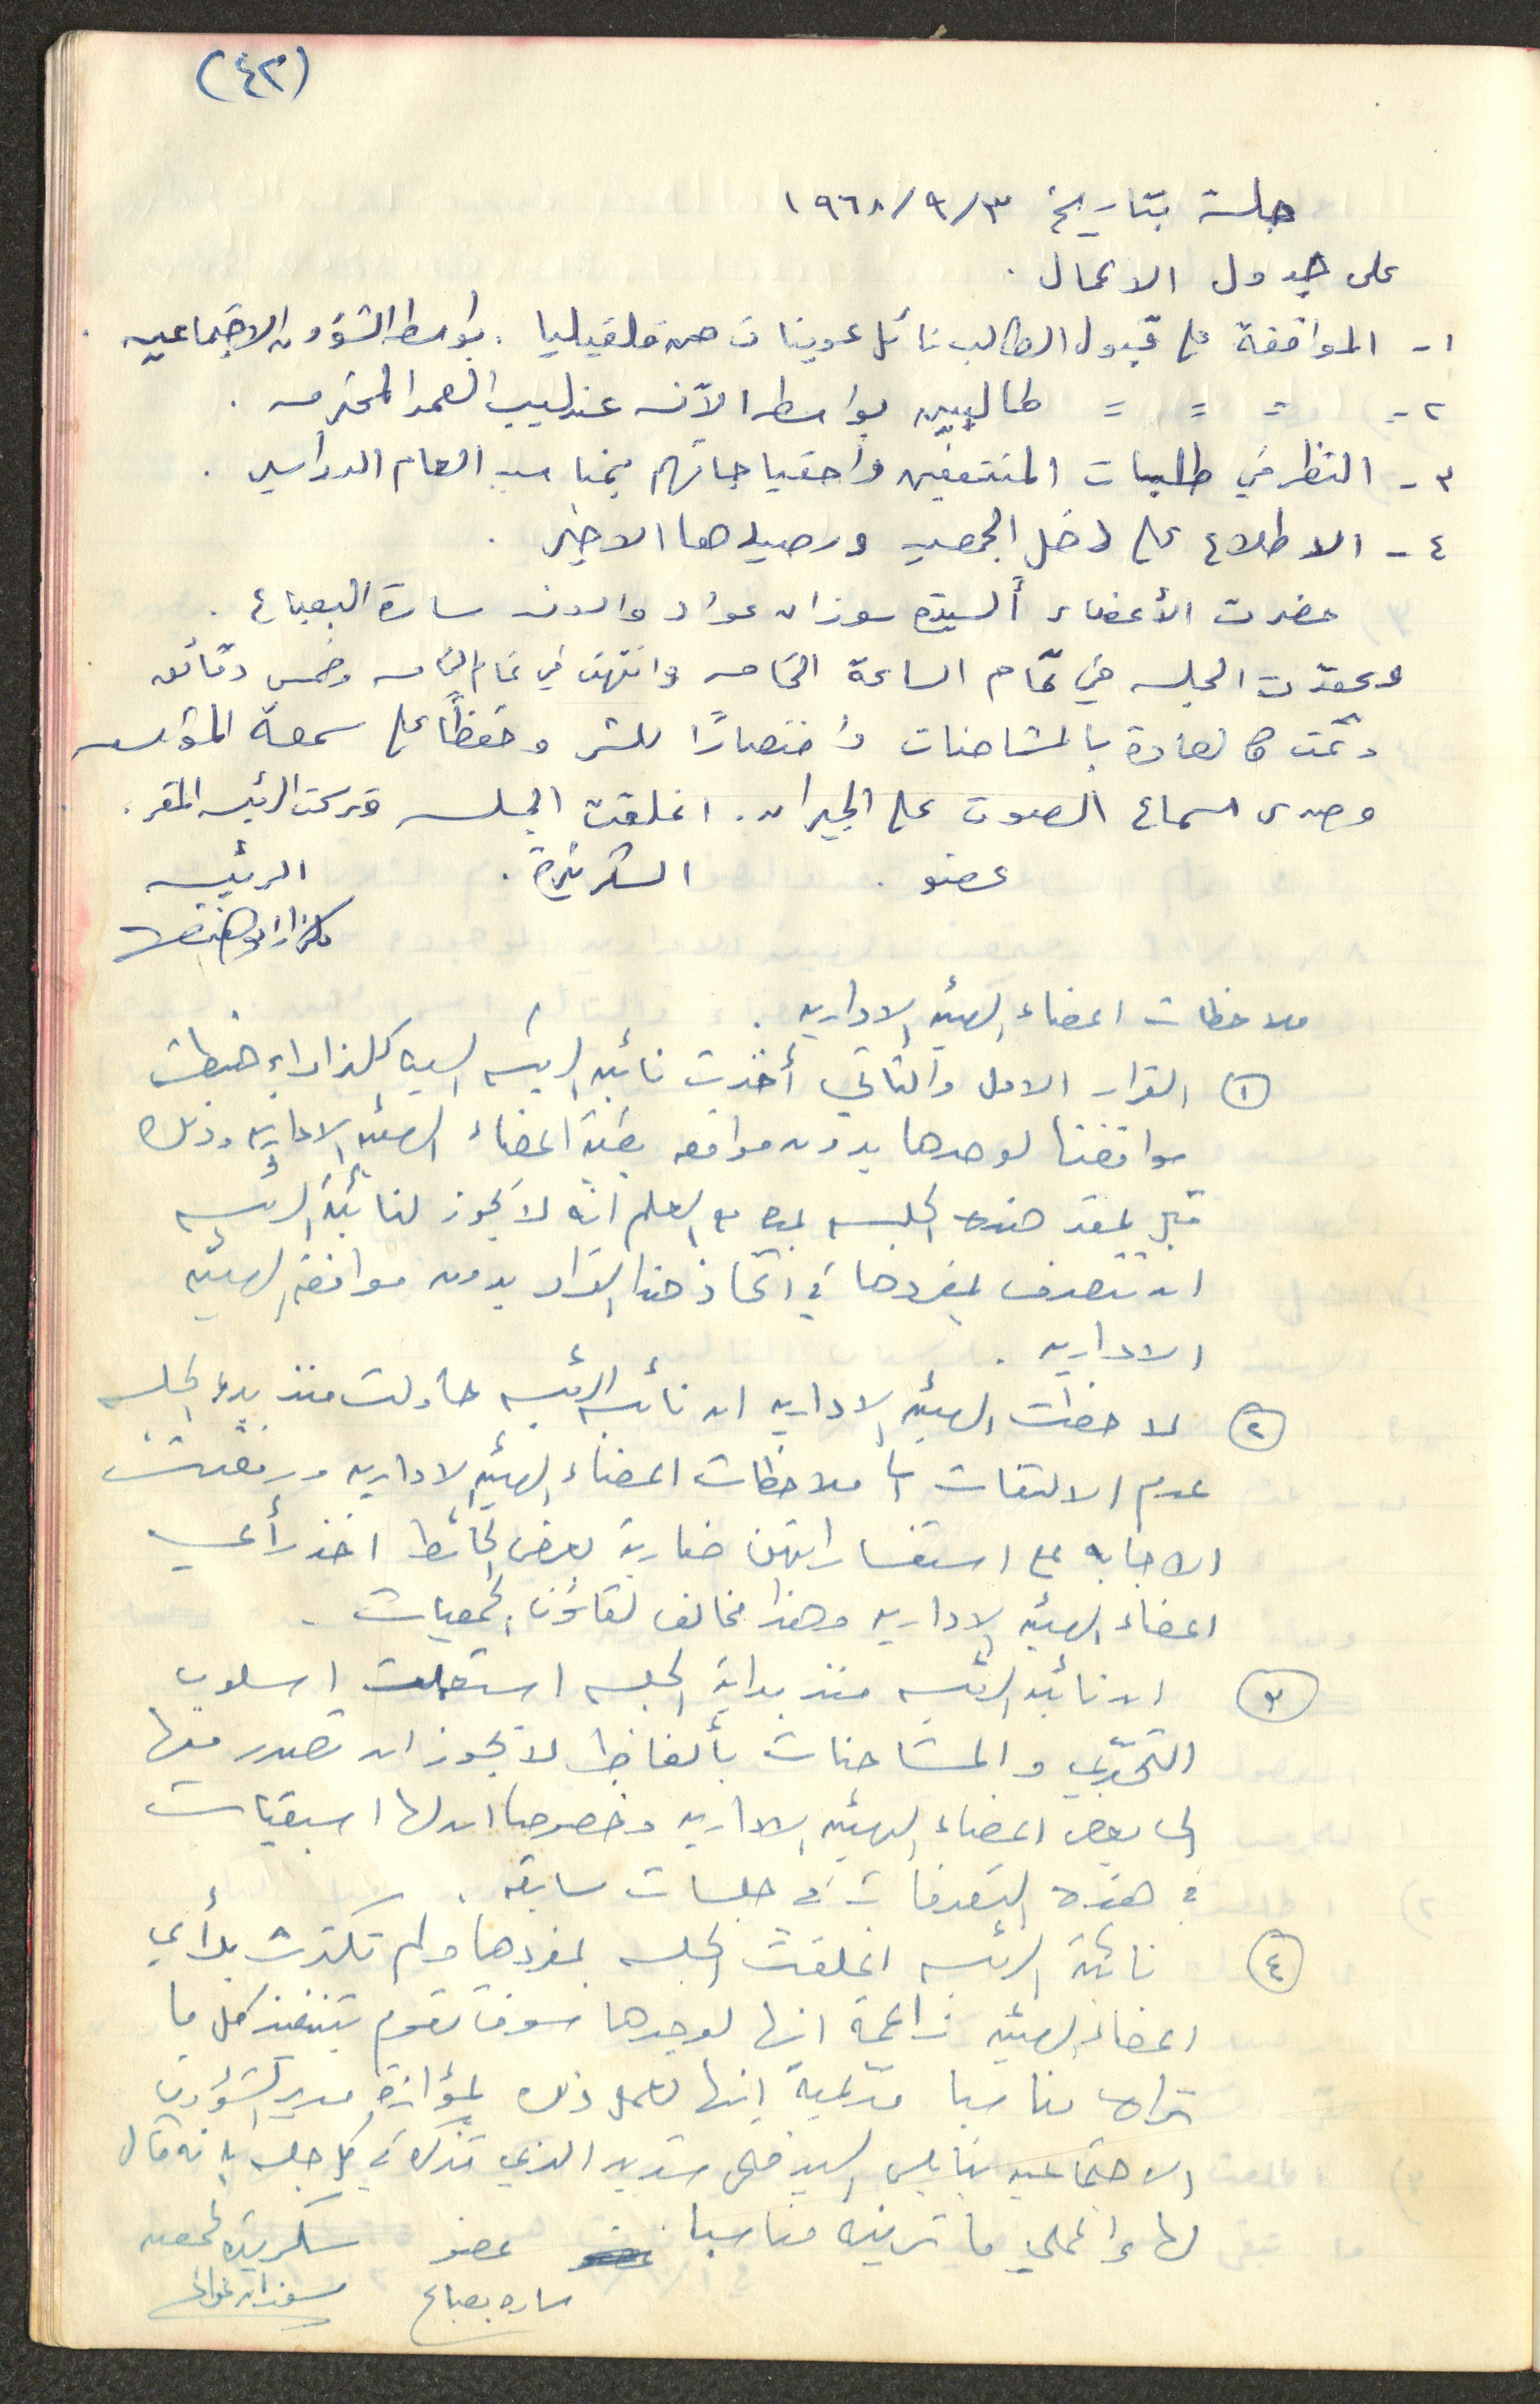 (٤٢)
جلسة بتاريخ ٣/٩/١٩٦٨
على جدول الاعمال .
١- الموافقة على قبول الطالب نائل عوينات من قلقيليا . بواسطة الشؤون الاجتماعيه .
٢- = = = طالبين بواسطة الآنسه عندليب العمد المحترمه .
٣- النظر في طلبات المنتفعين واحتياجاتهم بمناسبة العام الدراسي .
٤- الاطلاع على دخل الجمعيه ورصيدها الاخير .
حضرت الأعضاء السيدة سوزان عواد والانسه سارة البعباع .
وعقدت الجلسه في تمام الساعة الخامسه وانتهت في تمام الخامسه وخمس دقائق
وتمت كالعادة بالمشاحنات واختصارًا للشر وحفظًا على سمعة المؤسسه
وصدى اسماع الصوت على الجيران . اغلقت الجلسه وتركت الرئيسه المقر .
عضو . السكرتيرة . الرئيسه
ملاحظات اعضاء الهيئه الاداريه .
١ القرار الاول والثاني أخذت نائبه الرئيسه السيده كلندا ابو هنطش
موافقتها لوحدها بدون موافقه بقية اعضاء الهيئه الاداريه وذلك
قبل عقد هذه الجلسه مع العلم انه لا يجوز لنائبة الرئيسه
ان تتصرف بمفردها في اتخاذ هذا القرار بدون موافقة الهيئه
الاداريه .
٢ لاحظت الهيئه الاداريه ان نائبه الرئيسه حاولت منذ بدء الجلسه
عدم الالتفات الى ملاحظات اعضاء الهيئه الاداريه ورفضت
الاجابه على استفساراتهن ضاربة بعرض الحائط اخذ رأي
اعضاء الهيئه الاداريه وهذا مخالف لقانون الجمعيات .
٣ ان نائبه الرئيسه منذ بداية الجلسه استعملت اسلوب
التحدّي والمشاحنات بألفاظ لا يجوز ان تصدر منها
الى بعض اعضاء الهيئه الاداريه وخصوصا ان لها اسبقيات
في هذه التصرفات في جلسات سابقه .
٤ نائبة الرئيسه اغلقت الجلسه بمفردها ولم تكترث برأي
اعضاء الهيئه زاعمة انها لوحدها سوف تقوم بتنفيذ كل ما
تراه مناسبا مدّعية انها تعمل ذلك بمؤازرة مدير الشؤون
الاجتماعيه بنابلس السيد شديد الذي تذكر في كل جلسه بانه قال
لها اعملي ما ترينه مناسبا . عضو سكرتيرة الجمعيه
ساره بعباع سوزان عواد